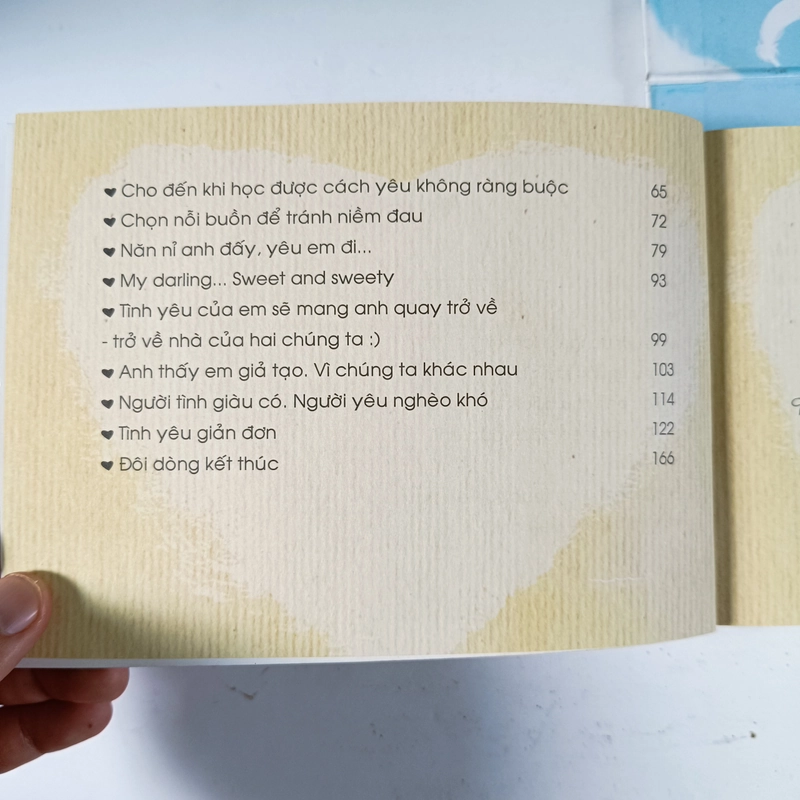 Cho đến khi học được cách yêu không ràng buộc 65
Chọn nỗi buồn để tránh niềm đau 72
Năn nỉ anh đấy, yêu em đi... 79
My darling... Sweet and sweety 93
Tình yêu của em sẽ mang anh quay trở về
- trở về nhà của hai chúng ta :) 99
Anh thấy em giả tạo. Vì chúng ta khác nhau 103
Người tình giàu có. Người yêu nghèo khó 114
Tình yêu giản đơn 122
Đôi dòng kết thúc 166